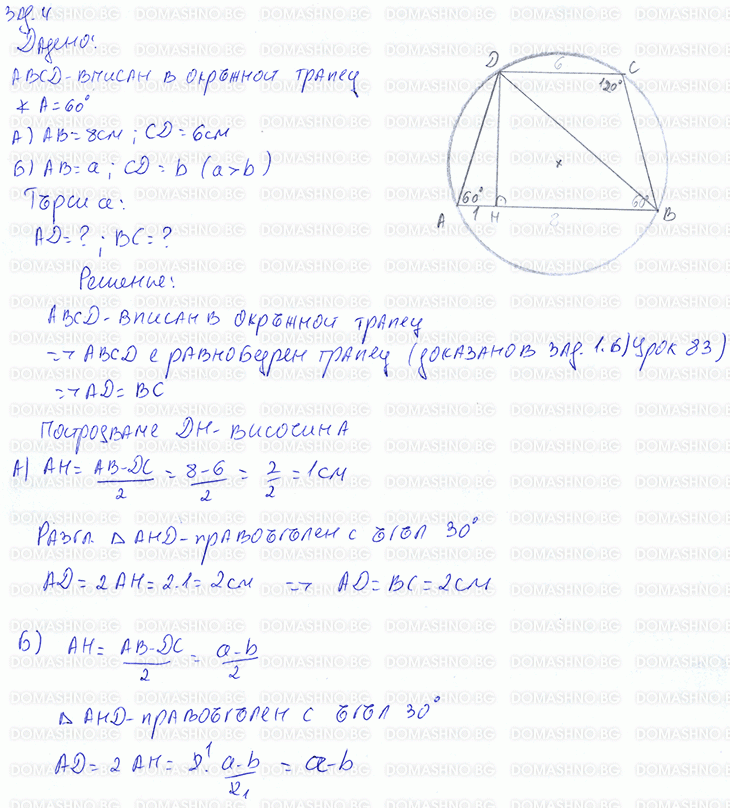 Зад. 4
Дадено:
ABCD - вписан в окръжност трапец
∢ A = 60°
А) AB = 8см ; CD = 6см
Б) AB = a ; CD = b (a > b)
Търси се:
AD = ? ; BC = ?
Решение:
ABCD - вписан в окръжност трапец
=> ABCD е равнобедрен трапец (доказано в зад. 1.б) Урок 83)
=> AD = BC
Построяваме DH - височина
А) AH = (AB - DC)/2 = (8 - 6)/2 = 2/2 = 1см
Разгл. △ AHD - правоъгълен с ъгъл 30°
AD = 2AH = 2.1 = 2см => AD = BC = 2см
Б) AH = (AB - DC)/2 = (a - b)/2
△ AHD - правоъгълен с ъгъл 30°
AD = 2 AH = 2¹. (a - b)/2₁ = a - b
D 6 C
120°
60° 60°
A 1 H 8 B
DOMASHNO.BG